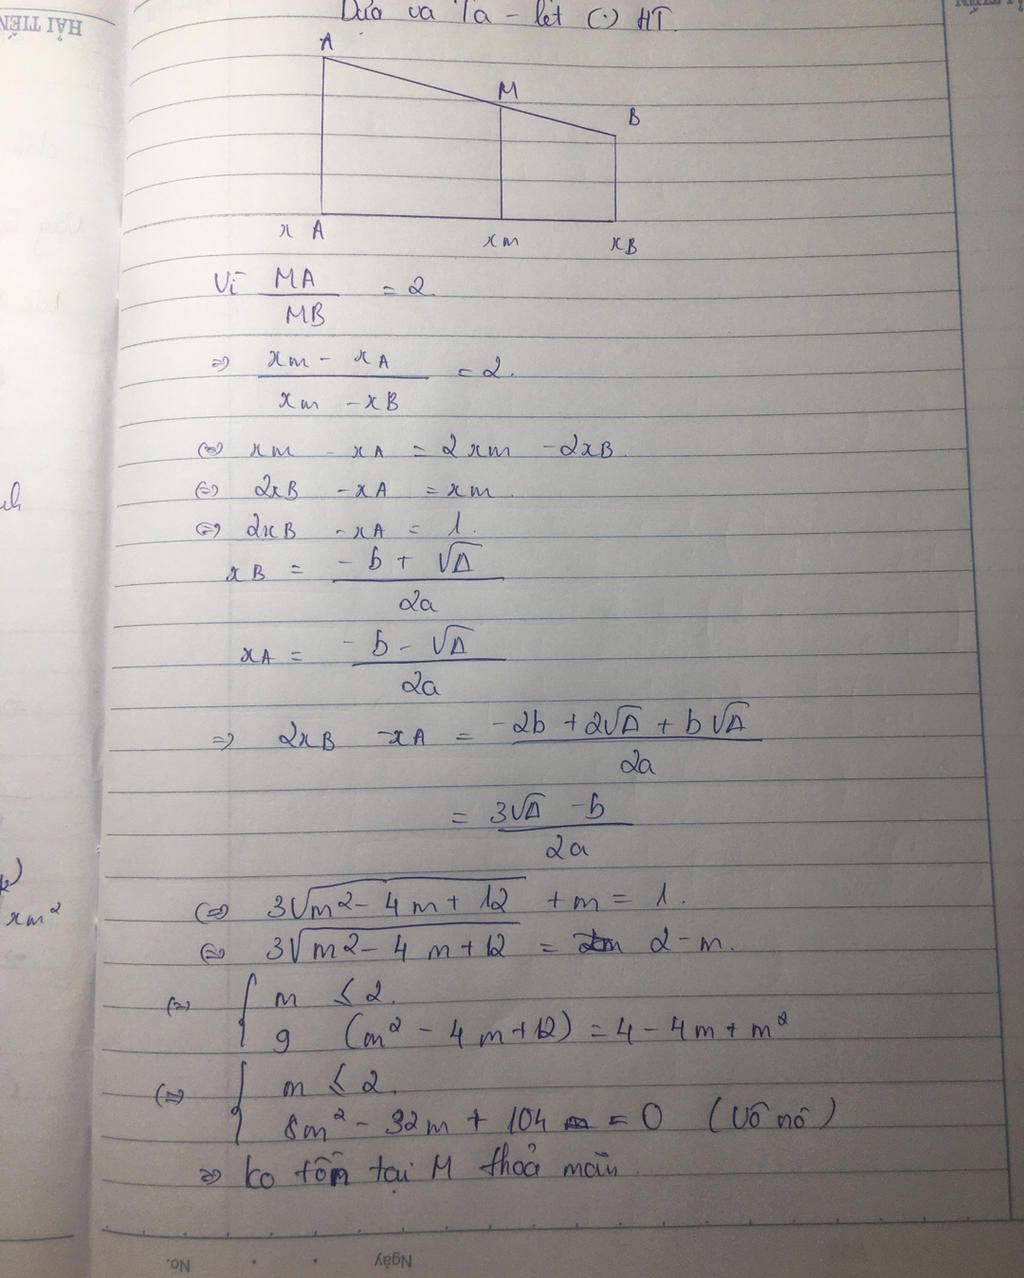 Dựa va Ta - lét (·) HT.
A
M
B
x A
x m
x B
Vì MA / MB = 2.
=> xm - xA / xm - xB = 2.
<=> xm - xA = 2xm - 2xB.
<=> 2xB - xA = xm.
<=> 2xB - xA = 1.
xB = -b + √Δ / 2a
xA = -b - √Δ / 2a
=> 2xB - xA = -2b + 2√Δ + b√Δ / 2a
= 3√Δ - b / 2a
<=> 3√m² - 4m + 12 + m = 1.
<=> 3√m² - 4m + 12 = 2-m.
<=> { m ≤ 2.
9 (m² - 4m + 12) = 4 - 4m + m²
<=> { m ≤ 2.
8m² - 32m + 104 = 0 (vô nô)
=> ko tồn tại M thoả mãn.
xm²
HẢI TIẾN
No.
Ngày